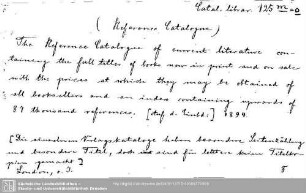 Catal. librar. 125 m - a
( Reference Catalogue)
The Reference Catalogue of current literature con-
taining the full titles of books now in print and on sale
with the prices at which they may be obtained of
all booksellers and an index containing upwards of
87 thousand references. 1899
[Die einzelnen Verlagskataloge haben besondere
und besondere Titel, doch sind für letztere keine
gemacht]
London, s. J. 8